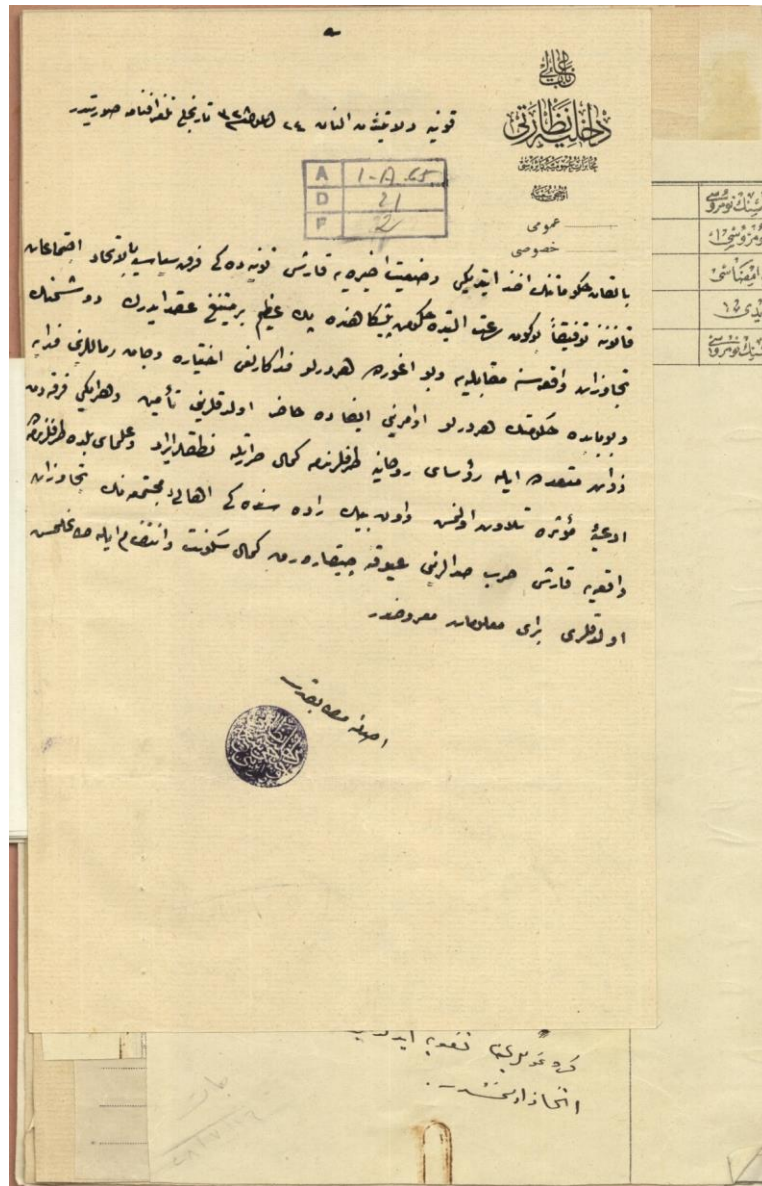 باب عالی
داخلیه نظارتی
عمومی
خصوصی
قونیه ولایتندن النان ٢٤ ایلول ٣٢٨ تاریخلی تلغرافنامه صورتیدر
A 1-A.65
D 21
F 2
بالقان حکوماتنك اخذ ایتدیکی وضعیت اخیره یه قارشی قونیه ده کی فرق سیاسیه بالاتحاد اجتماعات
قانوننه توفیقاً بوکون سرعت التنده حکومت پیشکاهنده پك عظیم بر میتنغ عقد ایدرك دوشمنك
تجاوزات واقعه سنه مقابله یه وبو اغورده هر درلو فداکارلغی اختیاره وجان وماللرینی فدایه
وبوبابده حکومتك هر درلو اوامرینی ایفاده حاضر اولدقلرینی تأمین وهر ایکی فرقه دن
ذوات متعدده ایله رؤسای روحانیه طرفلرندن کمال حرارتله نطقلر ایراد وعلمای بلده طرفلرندن
ادعیهٔ مؤثره تلاوت اولنمش واون بیك راده سنده کی اهالیء مجتمعه نك تجاوزات
واقعه یه قارشی حرب صدالرینی عیوقه چیقاره رق کمال سکونت وانتظام ایله طاغلمش
اولدقلری برای معلومات معروضدر
اصلنه مطابقدر
اتخاذ اولنمشدر